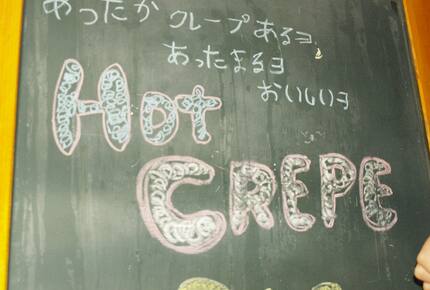 あったか クレープ あるヨ
あったまるヨ
おいしいヨ
Hot
CREPE